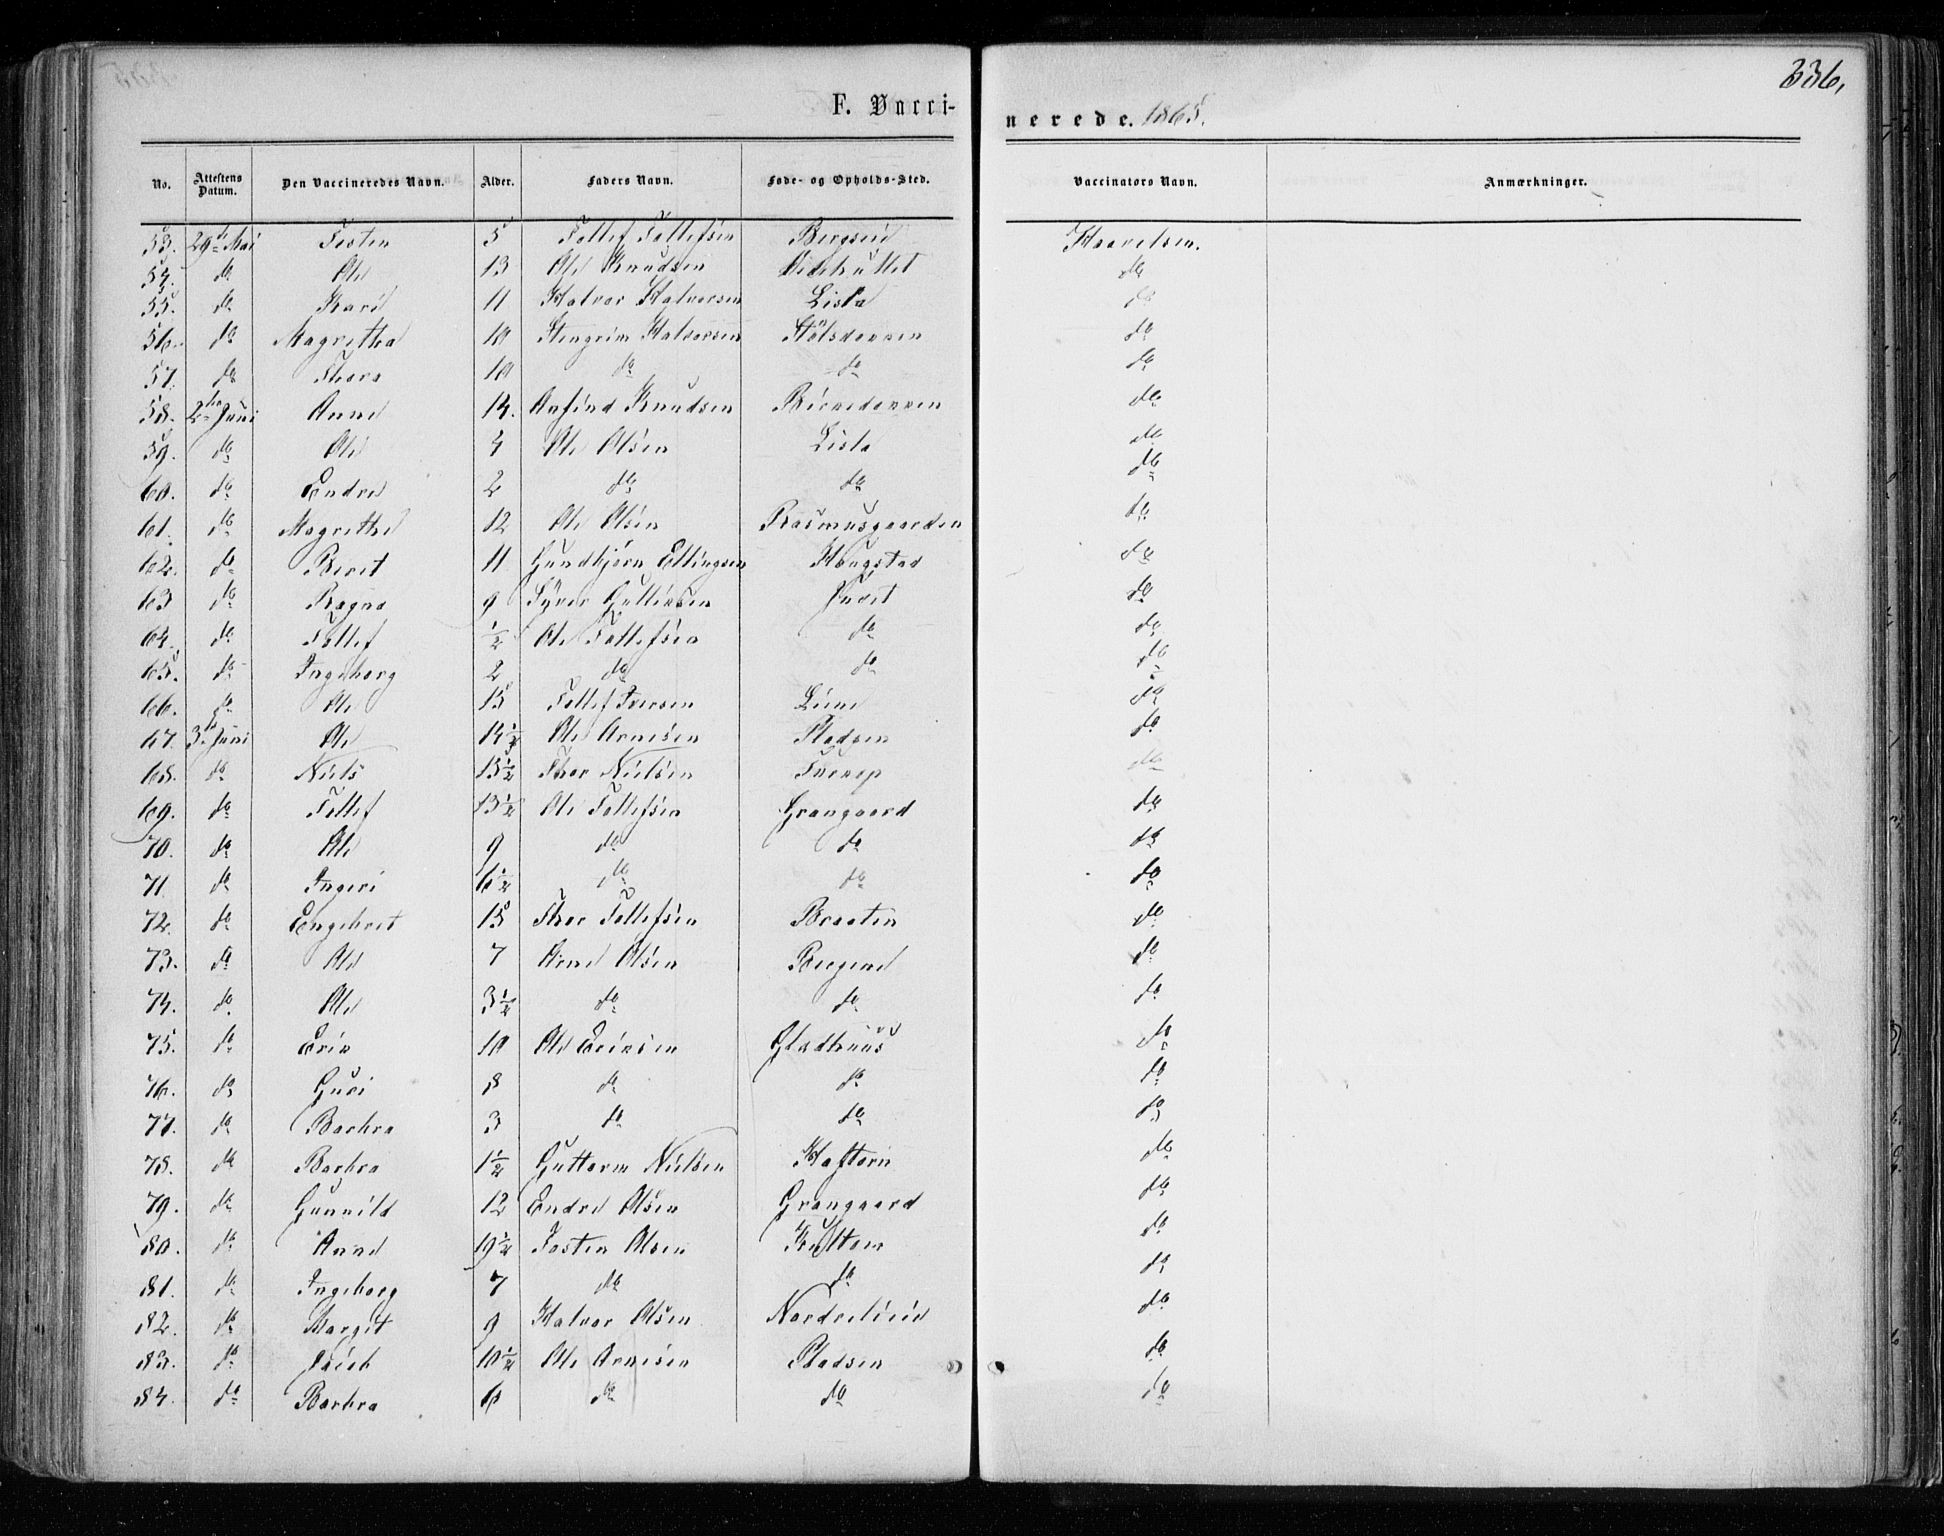 336,
F. Vacci-
nerede. 1865.
No. Attestens Datum. Den Vaccineredes Navn. Alder. Faders Navn. Føde- og Opholds-Sted. Vaccinators Navn. Anmærkninger.
53. 29de Mai 5 Tollef Tollefsen
54. do Ole 13 Ole Knudsen do
55. do Kari 11 Halvor Halvorsen Lisla do
56. do Magretha 10 Stengrim Halvorsen do
57. do Thora 10 do do do
58. 2den Juni Anne 14. Anfind Knudsen do
59. do Ole 4 Ole Olsen Lisla do
60. do Endre 2 do do do
61. do Magrethe 12 Ole Olsen Rasmusgaarden do
62. do Berit 11 Gundbjørn Ellingsen Haugstad do
63 do Ragna 9 Syver do
64. do Tollef ½ Ole Tollefsen do do
65. do Ingeborg 2 do do do
66. do Ole 15 Tollef Iversen do
67. 3de Juni Ole 14½ Ole Arnesen Pladsen do
68. do Niels 15½ Thor Nielsen do
69. do Tollef 13½ Ole Tollefsen Grangaard do
70. do Ole 9 do do do
71. do Ingeri 6½ do do do
72. do Engebret 15 Thor Tollefsen Braaten do
73. do Ole 7 Arne Olsen do
74. do Ole 3½ do do do
75. do Erik 10 Ole Eriksen Gladhuus do
76. do Guri 8 do do do
77. do Barbra 3 do do do
78. do Barbra 1½ Guttorm Nielsen Haftorn do
79. do Gunnild 12 Endre Olsen Grangaard do
80. do Anne 19½ Josten Olsen do
81. do Ingeborg 7 do do do
82. do Margit 9 Halvor Olsen do
83. do 10½ Ole Arnesen Pladsen do
84. do Barbra 6 do do do